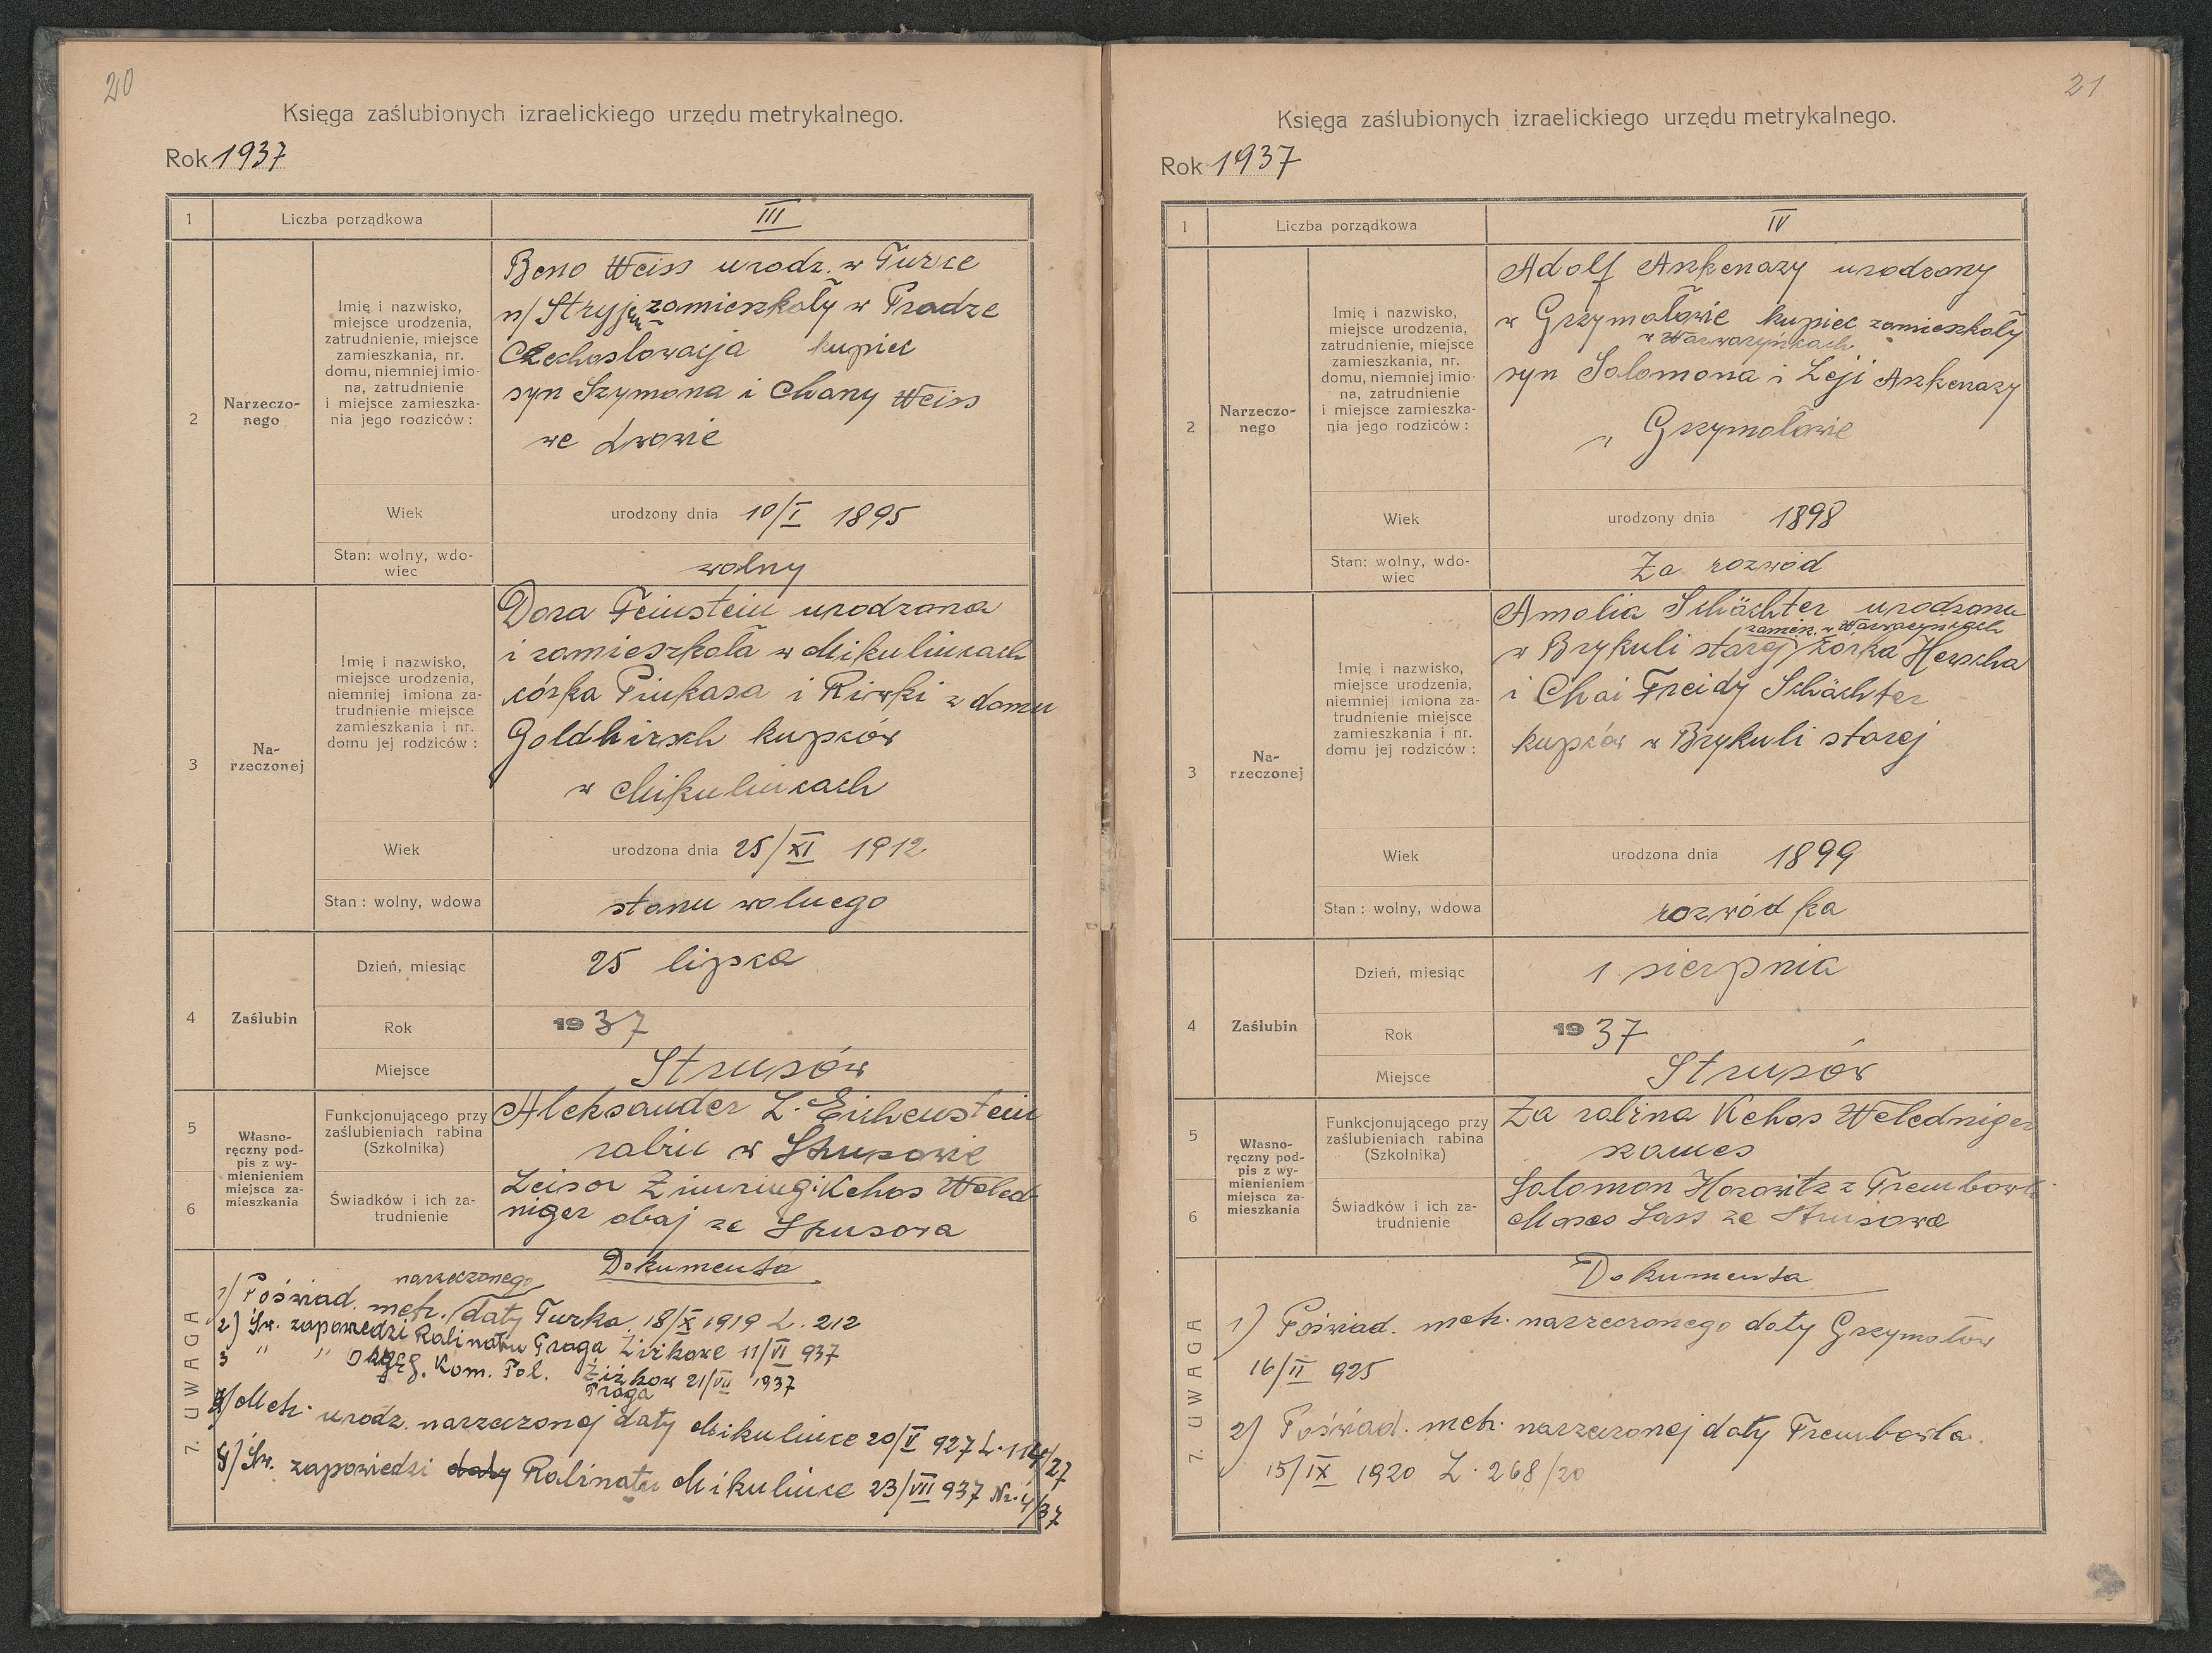 20
Księga zaślubionych izraelickiego urzędu metrykalnego.
Rok 1937
1
Liczba porządkowa
III
2
Narzeczo-
nego
Imię i nazwisko,
miejsce urodzenia,
zatrudnienie, miejsce
zamieszkania, nr.
domu, niemniej imio-
na, zatrudnienie
i miejsce zamieszka-
nia jego rodziców :
Beno Weiss urodz. w Turce
n/Stryjem zamieszkały w Pradze
Czechosłowacja kupiec
syn Szymona i Chany Weiss
we Lwowie
Wiek
urodzony dnia 10/I 1895
Stan: wolny, wdo-
wiec
wolny
3
Na-
rzeczonej
Imię i nazwisko,
miejsce urodzenia,
niemniej imiona za-
trudnienie miejsce
zamieszkania i nr.
domu jej rodziców :
Dora Feinstein urodzona
i zamieszkała w Mikulińcach
córka Pinkasa i Riwki z domu
Goldhirsch kupców
w Mikulińcach
Wiek
urodzona dnia 25/XI 1912
Stan : wolny, wdowa
stanu wolnego
4
Zaślubin
Dzień, miesiąc
25 lipca
Rok
1937
Miejsce
Strusów
5
6
Własno-
ręczny pod-
pis z wy-
mienieniem
miejsca za-
mieszkania
Funkcjonującego przy
zaślubieniach rabina
(Szkolnika)
Aleksander L. Eichenstein
rabin w Strusowie
Świadków i ich za-
trudnienie
Leisor Zimring i Kehos Weled-
niger obaj ze Strusowa
7. UWAGA
Dokumenta
narzeczonego
1) Poświad. metr. daty Turka 18/X 1919 L. 212
2) Św. zapowiedzi Rabinatu Praga Žižkove 11/VI 937
3 " " Okręg. Kom. Pol. Žižkow 21/VII 1937
Praga
4) Metr. urodz. narzeczonej daty Mikulińce 20/V 927 L. 114/27
5) Św. zapowiedzi daty Rabinatu Mikulińce 23/VII 937 Nr. 4/37
21
Księga zaślubionych izraelickiego urzędu metrykalnego.
Rok 1937
1
Liczba porządkowa
IV
2
Narzeczo-
nego
Imię i nazwisko,
miejsce urodzenia,
zatrudnienie, miejsce
zamieszkania, nr.
domu, niemniej imio-
na, zatrudnienie
i miejsce zamieszka-
nia jego rodziców :
Adolf Askenazy urodzony
w Grzymałowie kupiec zamieszkały
w Warwaryńcach
syn Salomona i Leji Askenazy
w Grzymałowie
Wiek
urodzony dnia 1898
Stan: wolny, wdo-
wiec
Za rozwód
3
Na-
rzeczonej
Imię i nazwisko,
miejsce urodzenia,
niemniej imiona za-
trudnienie miejsce
zamieszkania i nr.
domu jej rodziców :
Amalia Schächter urodzona
zamiesz. w Warwaryńcach
w Brykuli starej, córka Herscha
i Chai Freidy Schächter
kupców w Brykuli starej
Wiek
urodzona dnia 1899
Stan : wolny, wdowa
rozwódka
4
Zaślubin
Dzień, miesiąc
1 sierpnia
Rok
1937
Miejsce
Strusów
5
6
Własno-
ręczny pod-
pis z wy-
mienieniem
miejsca za-
mieszkania
Funkcjonującego przy
zaślubieniach rabina
(Szkolnika)
Za rabina Kehos Weledniger
szames
Świadków i ich za-
trudnienie
Salomon Horowitz z Trembowli
Moses Lass ze Strusowa
7. UWAGA
Dokumenta
1) Poświad. metr. narzeczonego daty Grzymałów
16/II 925
2) Poświad. metr. narzeczonej daty Trembowla.
15/IX 1920 L. 268/20